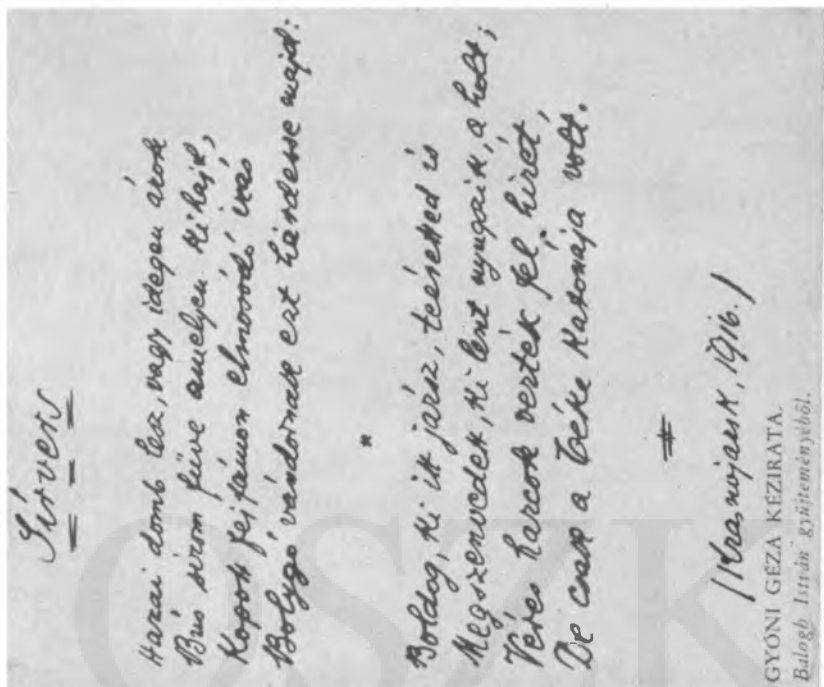 Sírvers
Hazai domb lesz, vagy idegen árok
Bús sirom füve amelyen kihajt,
Kopott fejfámon elmosódó irás
Bolygó vándornak ezt hirdesse majd:
*
Boldog, ki itt jársz, teéretted is
Megszenvedett, ki lent nyugszik, a holt;
Véres harcok verték fel hirét,
De csak a béke katonája volt.
/Krasnojarsk, 1916./
GYÓNI GÉZA KÉZIRATA.
Balogh István gyűjteményéből.
OSZK